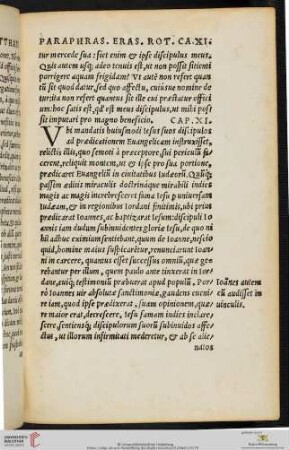 PARAPHRAS. ERAS. ROT. CA. XI.
tur mercede sua: siet enim & ipse discipulus meus.
Quis autem usq; adeo tenuis est, ut non possit sitienti
porrigere aquam frigidam? Ut autē non refert quan
tū sit quod datur, sed quo affectu, cuius nomine de
tur ita non refert quantus sit ille cui præstatur offici
um: hoc satis est, qd est meus discipulus, ut mihi pos
sit imputari pro magno beneficio. CAP. XI.
Vbi mandatis huiusmodi Iesus suos discipulos
ad prædicationem Euangelicam instruxisset,
relictis illis, quo semet à præceptore, sui periculū fa
cerent, reliquit montem, ut & ipse pro sua portione,
prædicaret Euangelium in ciuitatibus Iudæorū. Quūq;
passim audiris miraculis doctrinaque mirabili indies
magis ac magis increbresceret fama Iesu p uniuersam
Iudæam, & in regionibus Iordani finitimis, ubi prius
prædicarat Ioannes, ac baptizarat Iesum: discipuli Io
annis iam dudum subinuidentes gloriæ Iesu, de quo ni
hil adhuc eximium sentiebant, quum de Ioanne, nescio
quid, homine maius suspicarētur, renunciarunt Ioan
ni in carcere, quantus esset successus omniū, quæ ge
rebantur per illum, quem paulo ante tinxerat in Ior
dane, cuiq; testimoniū præbuerat apud populū. Por
rò Ioannes uir absolutæ sanctimoniæ, gaudens eueni
re iam, quod ipse prædixerat, suam opinionem, quæ
re maior erat, decrescere, Iesu famam indies inclare
scere, sentiensq; discipulorum suorū subinuidos affe
ctus, ut illorum infirmitati mederetur, & ab se alie
natos
Ioānes autem
cū audisset in
uinculis.